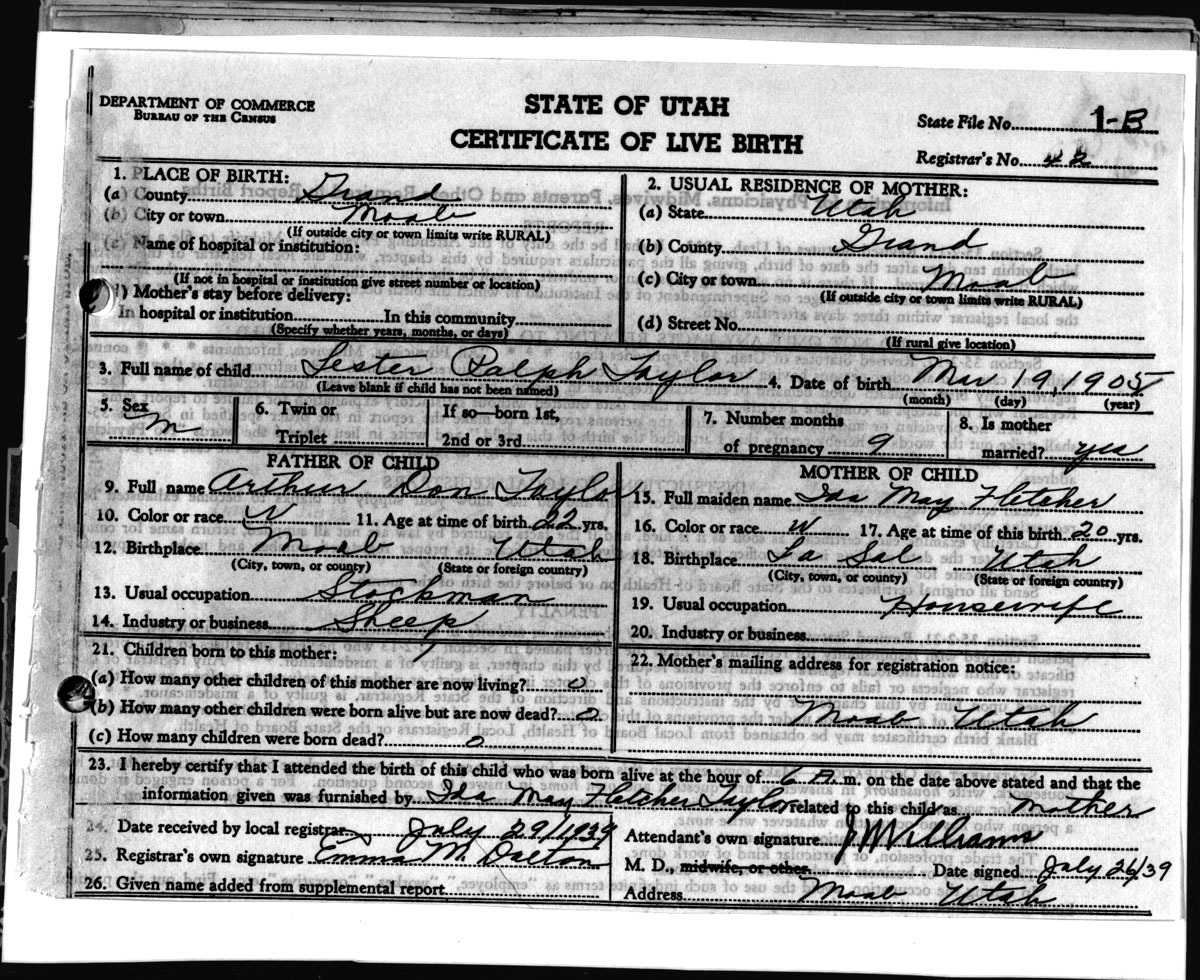 DEPARTMENT OF COMMERCE
BUREAU OF THE CENSUS
STATE OF UTAH
CERTIFICATE OF LIVE BIRTH
State File No. 1-B
Registrar's No.
1. PLACE OF BIRTH:
(a) County Grand
(b) City or town Moab
(If outside city or town limits write RURAL)
(c) Name of hospital or institution:
(If not in hospital or institution give street number or location)
(d) Mother's stay before delivery:
In hospital or institution In this community
(Specify whether years, months, or days)
2. USUAL RESIDENCE OF MOTHER:
(a) State Utah
(b) County Grand
(c) City or town Moab
(If outside city or town limits write RURAL)
(d) Street No.
(If rural give location)
3. Full name of child Lester Ralph Taylor 4. Date of birth Mar 19, 1905
(Leave blank if child has not been named) (month) (day) (year)
5. Sex m
6. Twin or Triplet
If so—born 1st, 2nd or 3rd
7. Number months of pregnancy 9
8. Is mother married? yes
FATHER OF CHILD
9. Full name Arthur Don Taylor
10. Color or race W 11. Age at time of birth 22 yrs.
12. Birthplace Moab Utah
(City, town, or county) (State or foreign country)
13. Usual occupation Stockman
14. Industry or business Sheep
MOTHER OF CHILD
15. Full maiden name Ida May Fletcher
16. Color or race W 17. Age at time of this birth 20 yrs.
18. Birthplace La Sal Utah
(City, town, or county) (State or foreign country)
19. Usual occupation Housewife
20. Industry or business
21. Children born to this mother: 1
(a) How many other children of this mother are now living? 0
(b) How many other children were born alive but are now dead? 0
(c) How many children were born dead? 0
22. Mother's mailing address for registration notice:
Moab Utah
23. I hereby certify that I attended the birth of this child who was born alive at the hour of 6 A.m. on the date above stated and that the
information given was furnished by Ida May Fletcher Taylor related to this child as Mother
24. Date received by local registrar July 29, 1939
25. Registrar's own signature Emma M. Dalton
26. Given name added from supplemental report
Attendant's own signature J W Williams
M. D., midwife, or other Date signed July 26/39
Address Moab Utah